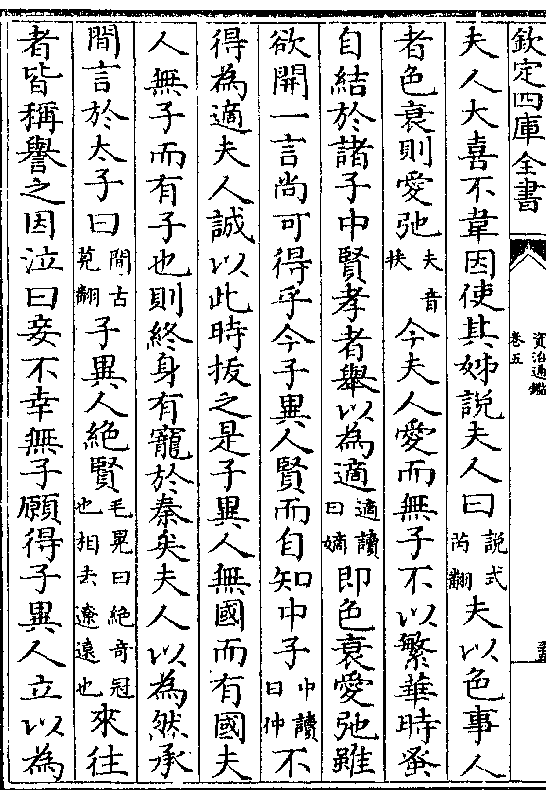 欽定四庫全書
資治通鑑
卷五
夫人大喜不韋因使其姊說夫人曰說式芮翻夫以色事人
者色衰則愛弛夫音扶今夫人愛而無子不以繁華時蚤
自結於諸子中賢孝者舉以為適適讀曰嫡即色衰愛弛雖
欲開一言尚可得乎今子異人賢而自知中子中讀曰仲不
得為適夫人誠以此時拔之是子異人無國而有國夫
人無子而有子也則終身有寵於秦矣夫人以為然承
間言於太子曰間古莧翻子異人絶賢毛晃曰絶奇冠也相去遼遠也來往
者皆稱譽之因泣曰妾不幸無子願得子異人立以為